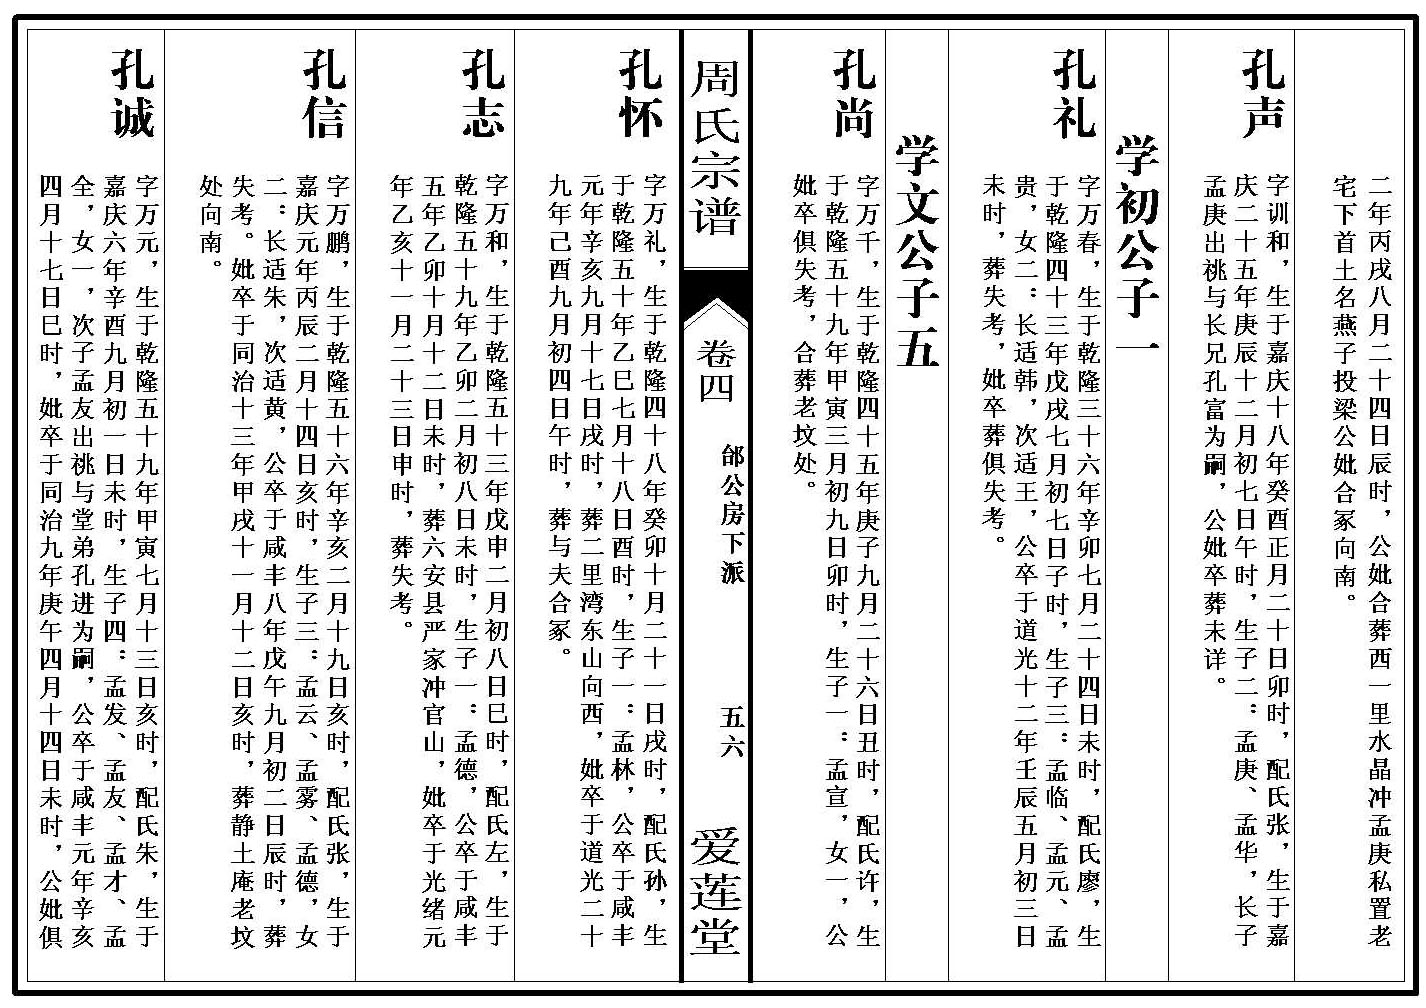 二年丙戌八月二十四日辰时，公妣合葬西一里水晶冲孟庚私置老
宅下首土名燕子投梁公妣合冢向南。
孔声
字训和，生于嘉庆十八年癸酉正月二十日卯时，配氏张，生于嘉
庆二十五年庚辰十二月初七日午时，生子二：孟庚、孟华，长子
孟庚出祧与长兄孔富为嗣，公妣卒葬未详。
学初公子一
孔礼
字万春，生于乾隆三十六年辛卯七月二十四日未时，配氏廖，生
于乾隆四十三年戊戌七月初七日子时，生子三：孟临、孟元、孟
贵，女二：长适韩，次适王，公卒于道光十二年壬辰五月初三日
未时，葬失考，妣卒葬俱失考。
学文公子五
孔尚
字万千，生于乾隆四十五年庚子九月二十六日丑时，配氏许，生
于乾隆五十九年甲寅三月初九日卯时，生子一：孟宣，女一，公
妣卒俱失考，合葬老坟处。
周氏宗谱
卷四
邰公房下派
五六
爱莲堂
孔怀
字万礼，生于乾隆四十八年癸卯十月二十一日戌时，配氏孙，生
于乾隆五十年乙巳七月十八日酉时，生子一：孟林，公卒于咸丰
元年辛亥九月十七日戌时，葬二里湾东山向西，妣卒于道光二十
九年己酉九月初四日午时，葬与夫合冢。
孔志
字万和，生于乾隆五十三年戊申二月初八日巳时，配氏左，生于
乾隆五十九年乙卯二月初八日未时，生子一：孟德，公卒于咸丰
五年乙卯十月十二日未时，葬六安县严家冲官山，妣卒于光绪元
年乙亥十一月二十三日申时，葬失考。
孔信
字万鹏，生于乾隆五十六年辛亥二月十九日亥时，配氏张，生于
嘉庆元年丙辰二月十四日亥时，生子三：孟云、孟雾、孟德，女
二：长适朱，次适黄，公卒于咸丰八年戊午九月初二日辰时，葬
失考。妣卒于同治十三年甲戌十一月十二日亥时，葬静土庵老坟
处向南。
孔诚
字万元，生于乾隆五十九年甲寅七月十三日亥时，配氏朱，生于
嘉庆六年辛酉九月初一日未时，生子四：孟发、孟友、孟才、孟
全，女一，次子孟友出祧与堂弟孔进为嗣，公卒于咸丰元年辛亥
四月十七日巳时，妣卒于同治九年庚午四月十四日未时，公妣俱